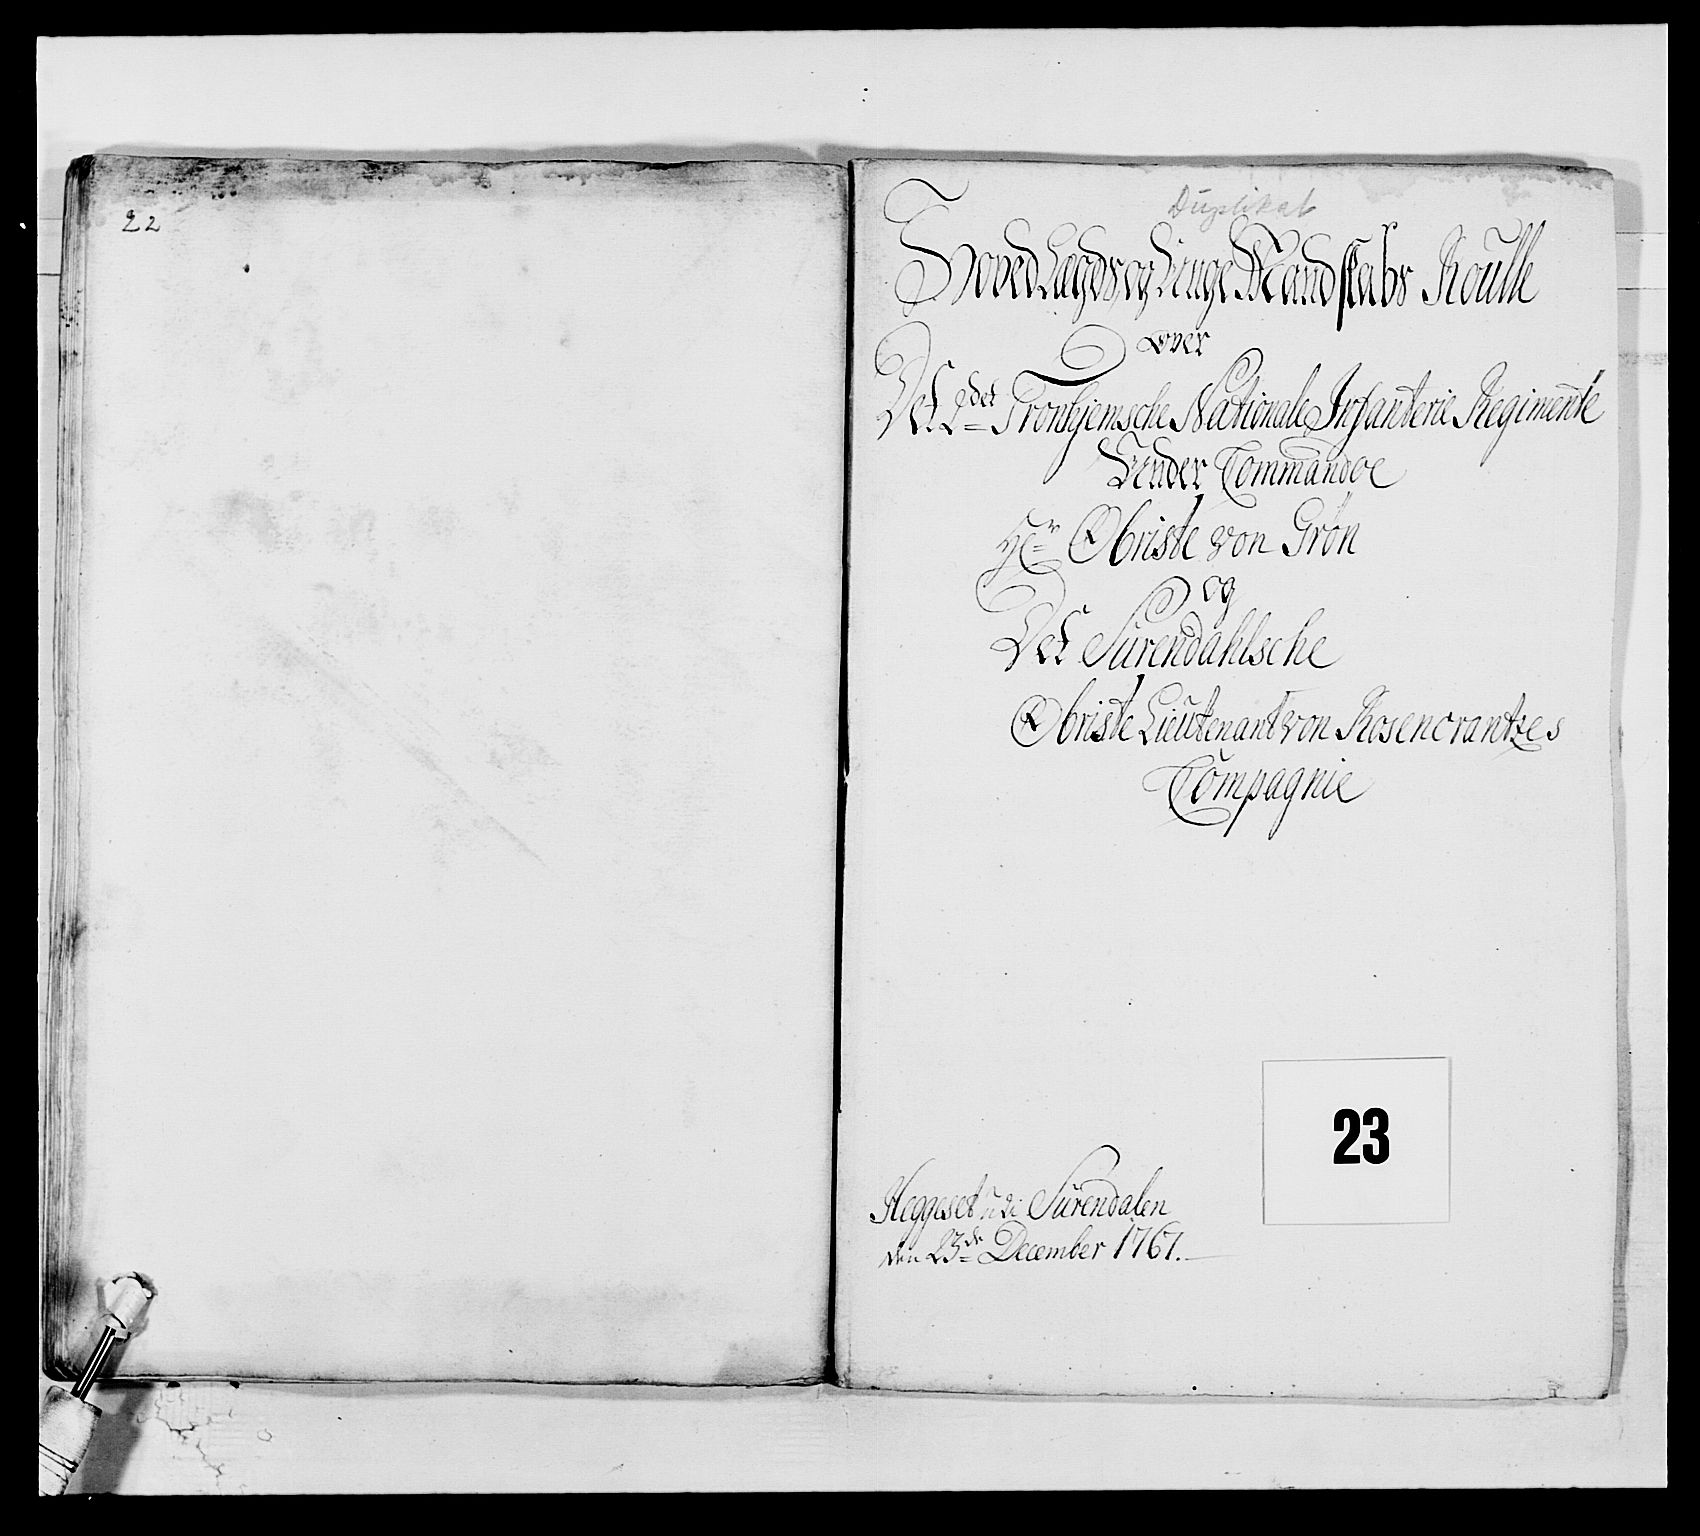 22
Duplikat
Hoved Lægds og Unge Mandskabs Roulle
over
Det 2det Tronhjemsche Nationale Infanterie Regimente
Under Commandoe
Hr Obriste von Grön
og
Det Surendahlsche
Obriste Lieutenant von Rosencrantzes
Compagnie
23
Heggeset udi Surendalen
den 23de December 1767.